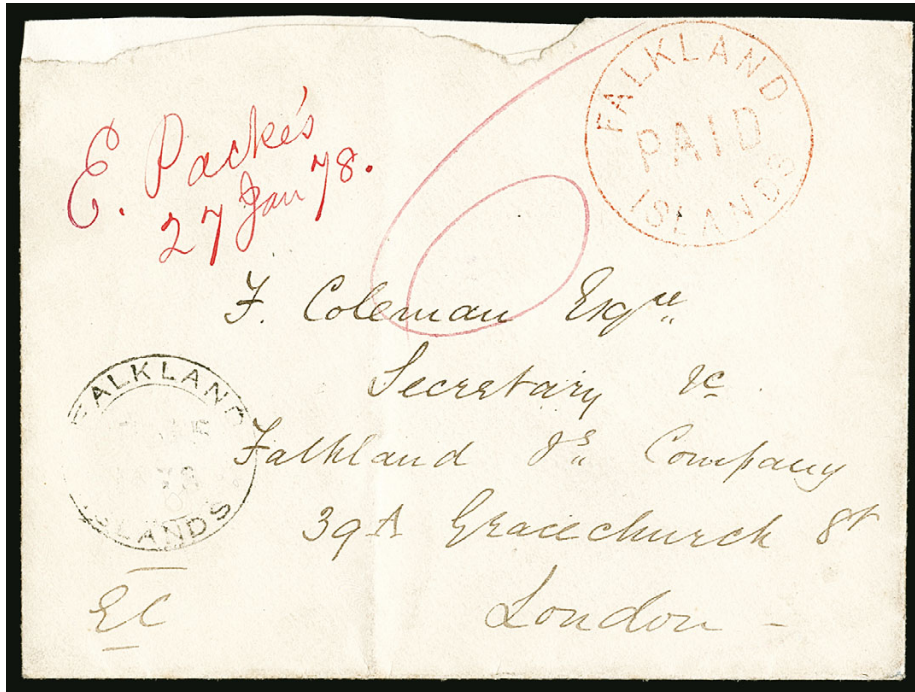 E. Packe's
27 Jan 78.
FALKLAND
PAID
ISLANDS
F. Coleman Esqre
Secretary &c
Falkland Is. Company
39A Gracechurch St
London
FALKLAND
ISLANDS
EC